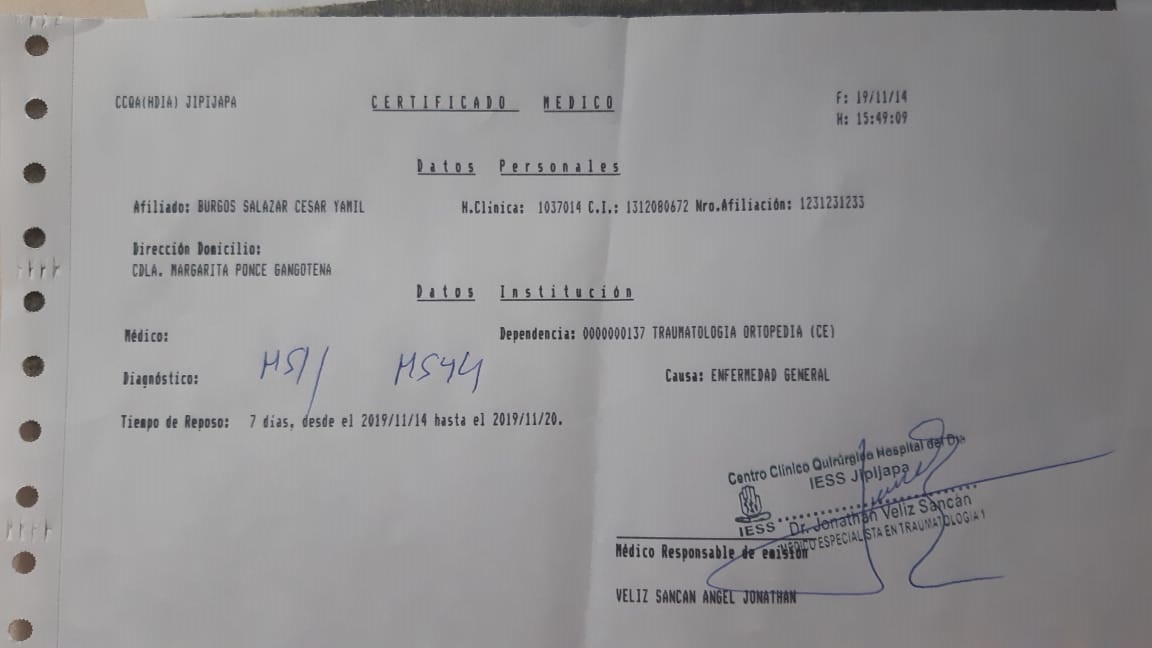 CCQA(HDIA) JIPIJAPA
CERTIFICADO MEDICO
F: 19/11/14
H: 15:49:09
Datos Personales
Afiliado: BURGOS SALAZAR CESAR YAMIL
H.Clinica: 1037014 C.I.: 1312080672 Nro.Afiliación: 1231231233
Dirección Domicilio:
CDLA. MARGARITA PONCE GANGOTENA
Datos Institución
Médico:
Dependencia: 0000000137 TRAUMATOLOGIA ORTOPEDIA (CE)
Diagnóstico: M511 M544
Causa: ENFERMEDAD GENERAL
Tiempo de Reposo: 7 días, desde el 2019/11/14 hasta el 2019/11/20.
Centro Clínico Quirúrgico Hospital del Día
IESS Jipijapa
IESS
Dr. Jonathan Veliz Sancán
MÉDICO ESPECIALISTA EN TRAUMATOLOGIA 1
Médico Responsable de emisión
VELIZ SANCAN ANGEL JONATHAN